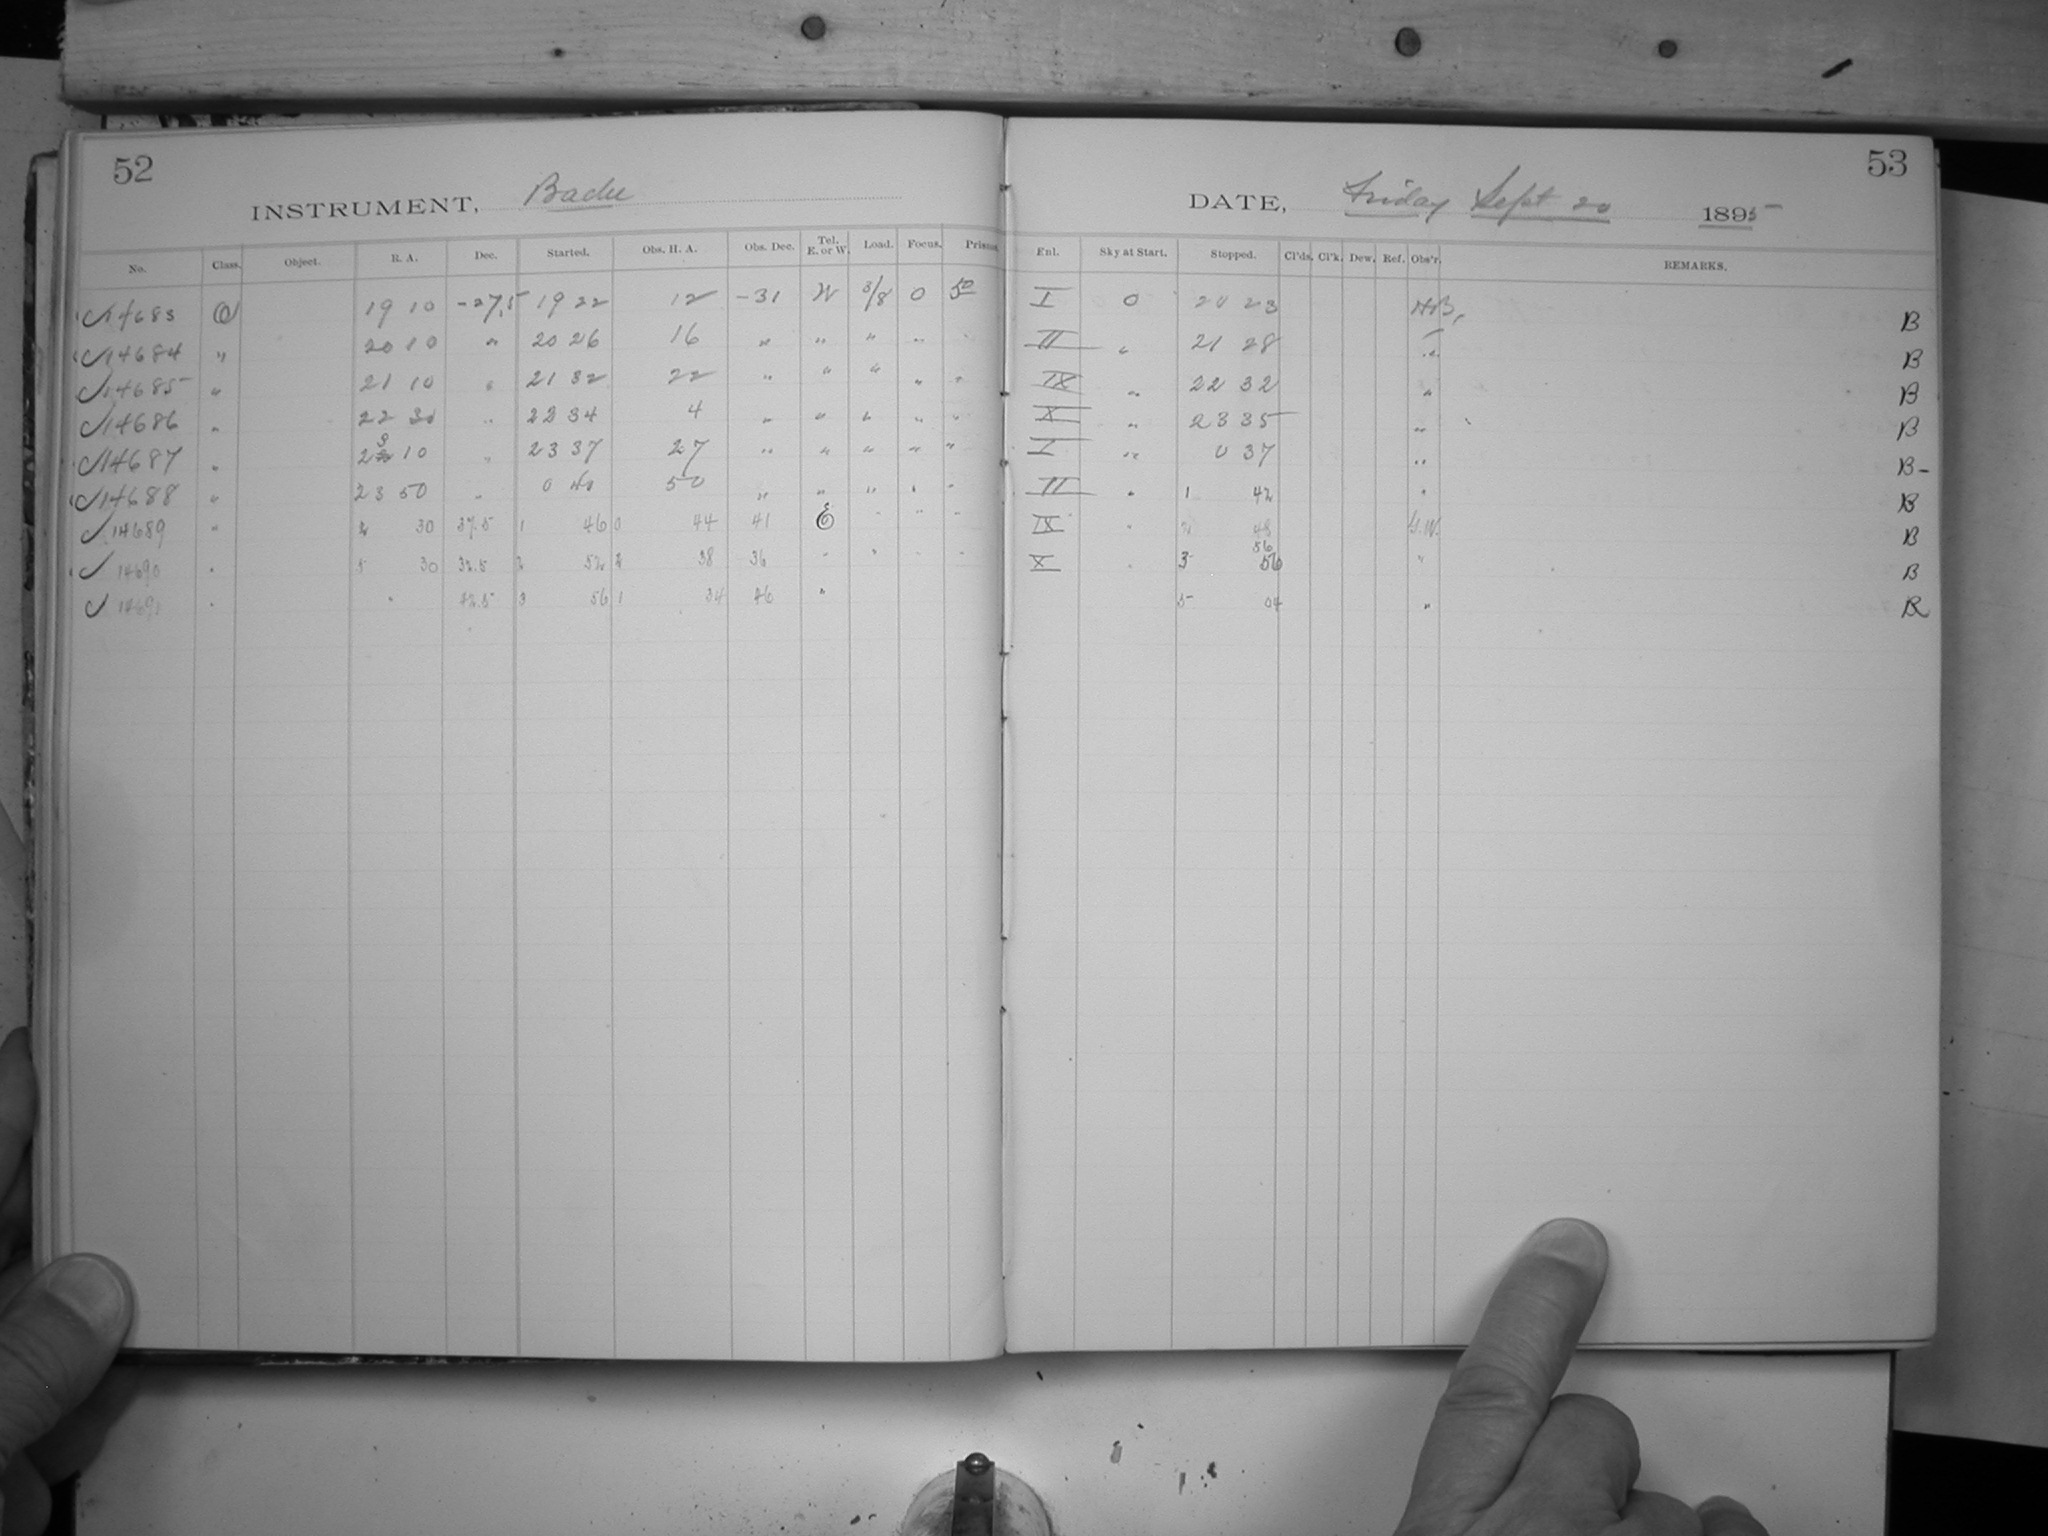 52
INSTRUMENT, Bache
No. Class. Object. R. A. Dec. Started. Obs. H. A. Obs. Dec. Tel. E. or W. Load. Focus. Prisms.
✓14683 19 10 -27.5 19 22 12 -31 W 3/8 0 50
✓14684 " 20 10 " 20 26 16 " " " "
✓14685 " 21 10 " 21 32 22 " " " " "
✓14686 " 22 30 " 22 34 4 " " " " "
✓14687 " 23 10 " 23 37 27 " " " " "
✓14688 " 23 50 " 0 40 50 " " " " "
✓14689 " 2 30 37.5 1 46 0 44 41 E " " "
✓14690 " 5 30 32.5 2 52 2 38 36 " " " "
✓14691 " " 42.5 3 56 1 34 46 "
53
DATE, Friday Sept 20 1895
Enl. Sky at Start. Stopped. Cl'ds. Cl'k. Dew. Ref. Obs'r. REMARKS.
I 0 20 23 B
II " 21 28 " B
IX " 22 32 " B
X " 23 35 " B
I " 0 37 " B-
II " 1 42 " B
IX " 2 48 B
X " 3 56 56 " B
5 04 " R